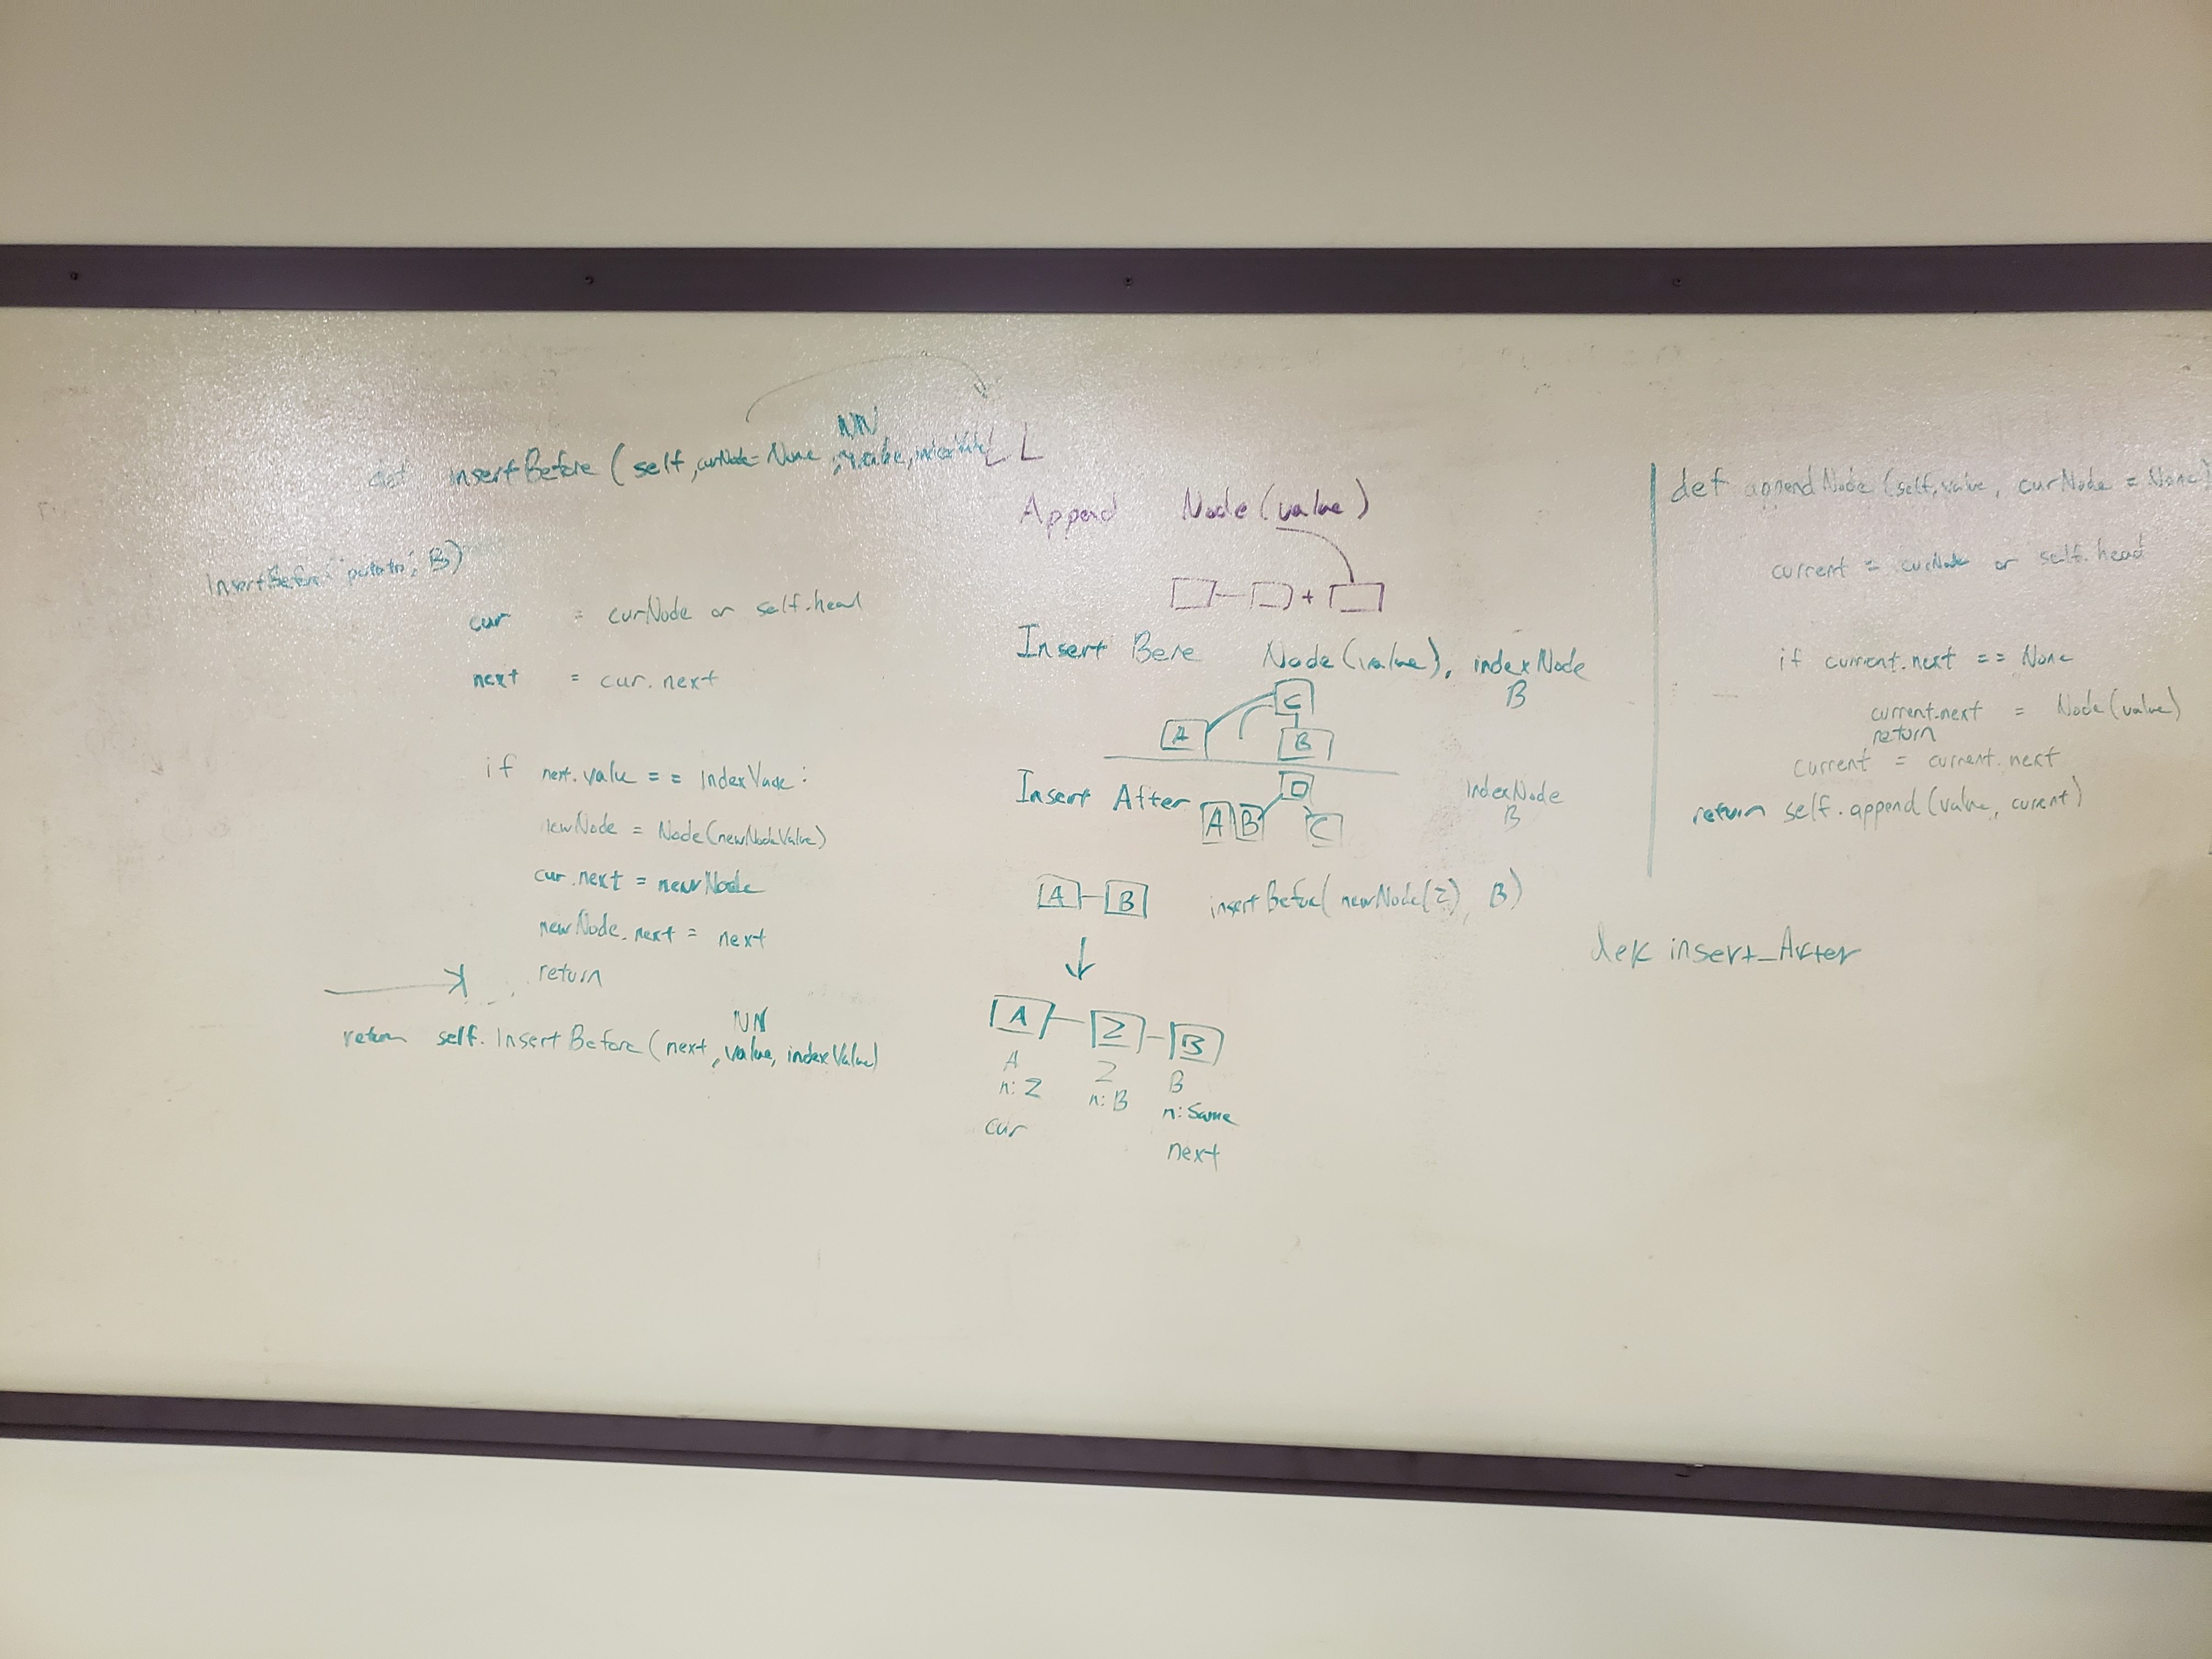 NN
def insertBefore (self, curNode = None, value, indexValue
LL
InsertBefore('potato', B)
cur = curNode or self.head
next = cur.next
if next.value == indexValue:
newNode = Node(newNodeValue)
cur.next = newNode
newNode.next = next
return
NN
return self.InsertBefore(next, value, indexValue)
Append Node(value)
+
Insert Bere Node(value), indexNode
B
C
A B
Insert After
D
A B C
IndexNode
B
A B insertBefore(newNode(Z), B)
A Z B
A Z B
n: Z n: B n: Same
cur next
def appendNode (self, value, curNode = None)
current = curNode or self.head
if current.next == None
current.next = Node(value)
return
current = current.next
return self.append(value, current)
def insert_After